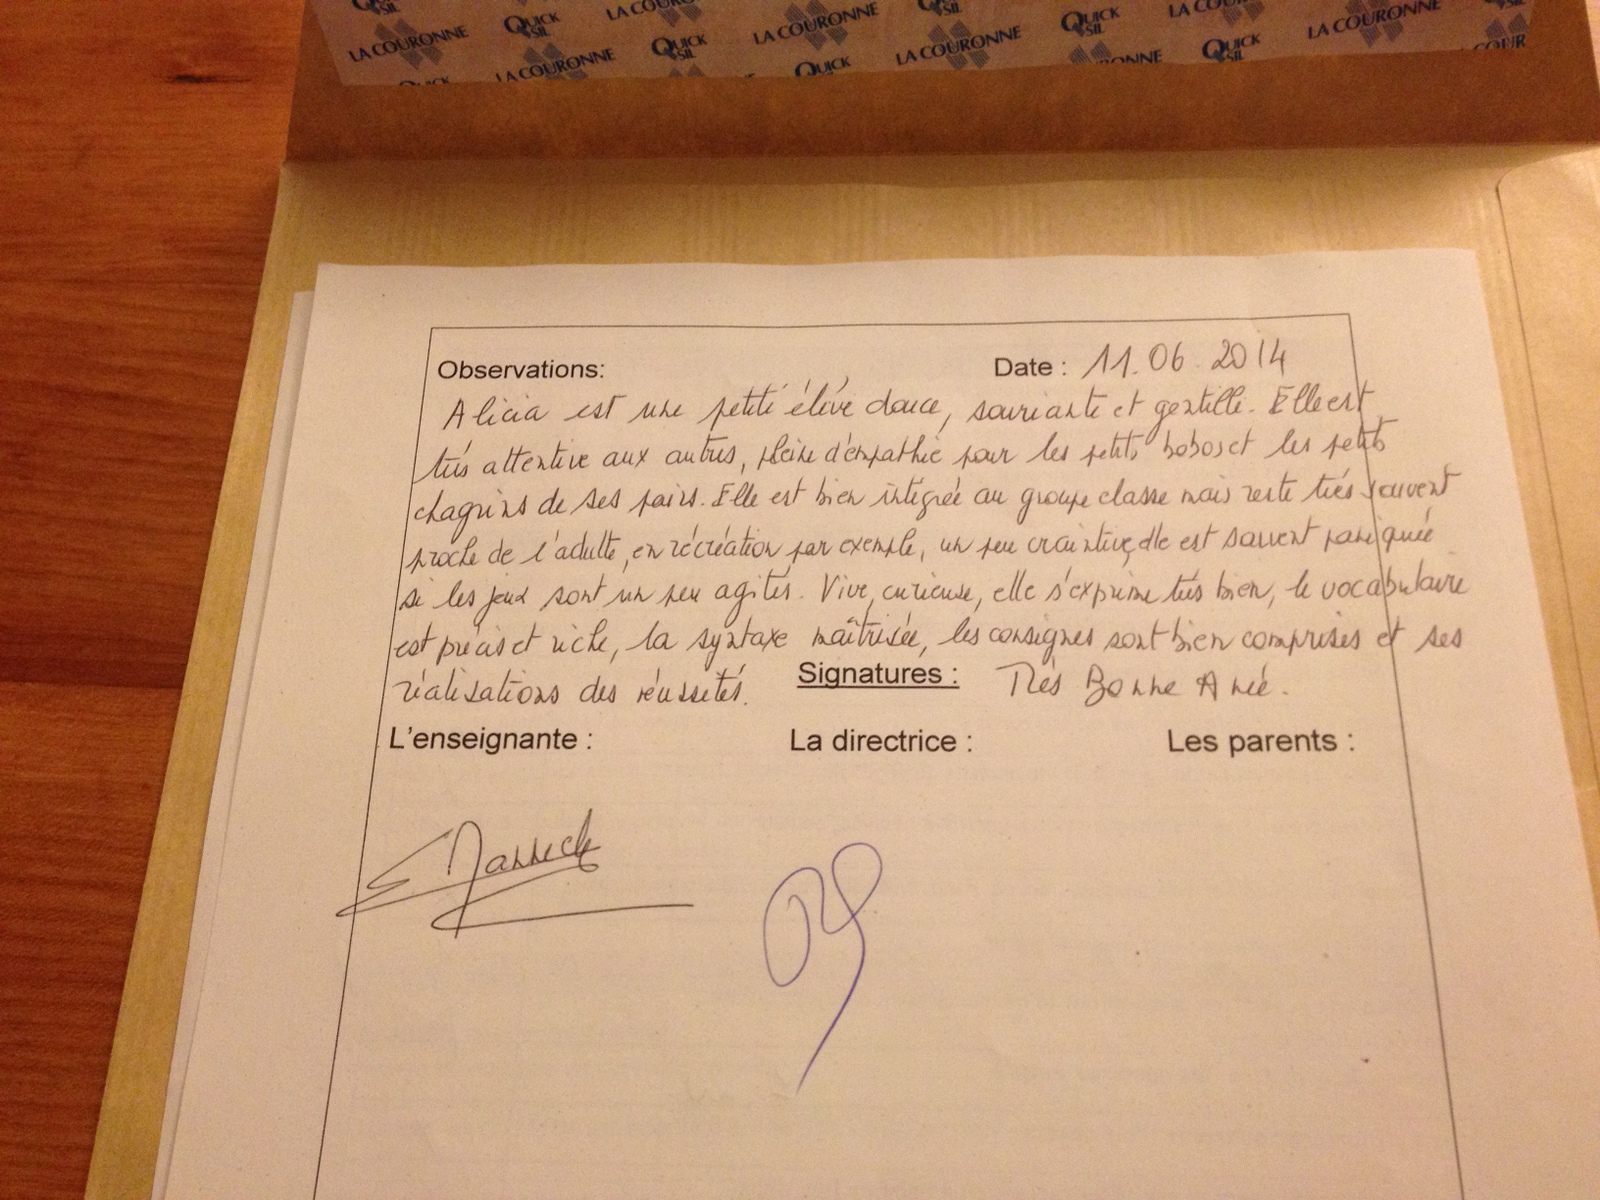 LA COURONNE QUICK SIL LA COURONNE QUICK SIL LA COURONNE QUICK SIL LA COURONNE
QUICK LA COURONNE QUICK SIL LA COURONNE QUICK SIL LA COURONNE
Observations: Date : 11.06.2014
Alicia est une petite élève douce, souriante et gentille. Elle est
très attentive aux autres, pleine d'empathie pour les petits bobos et les petits
chagrins de ses pairs. Elle est bien intégrée au groupe classe mais reste très souvent
proche de l'adulte, en récréation par exemple, un peu craintive, elle est souvent paniquée
si les jeux sont un peu agités. Vive, curieuse, elle s'exprime très bien, le vocabulaire
est précis et riche, la syntaxe maîtrisée, les consignes sont bien comprises et ses
réalisations des réussites. Signatures : Très Bonne Anée.
L'enseignante : La directrice : Les parents :